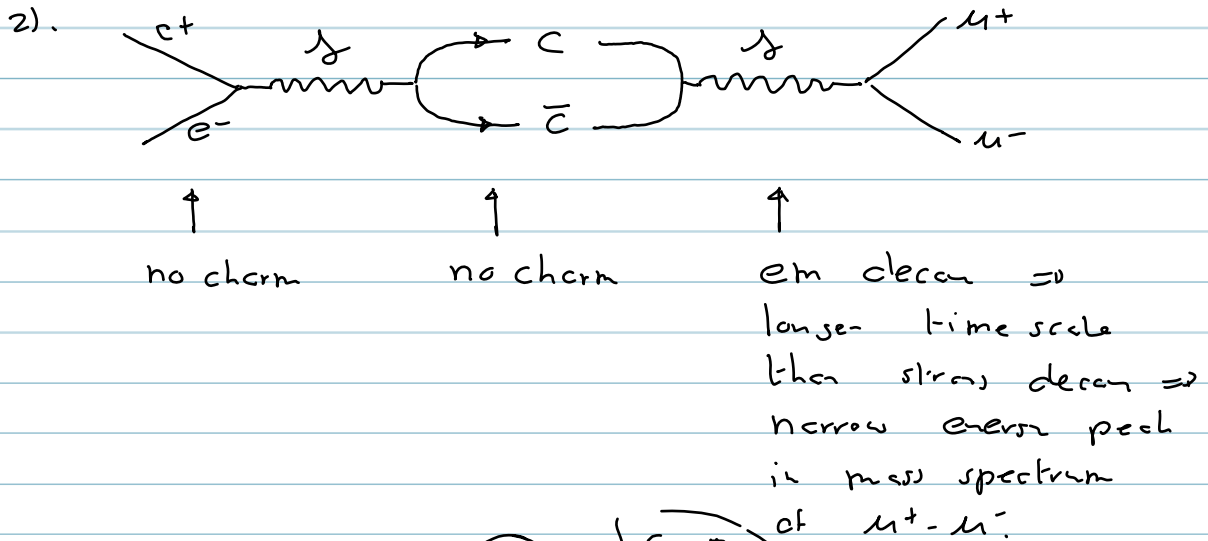 2).
e+ γ C γ μ+
e- C̄ μ-
no charm no charm em decay ⇒
longer time scale
than strong decay ⇒
narrow energy peak
in mass spectrum
of μ+-μ-.